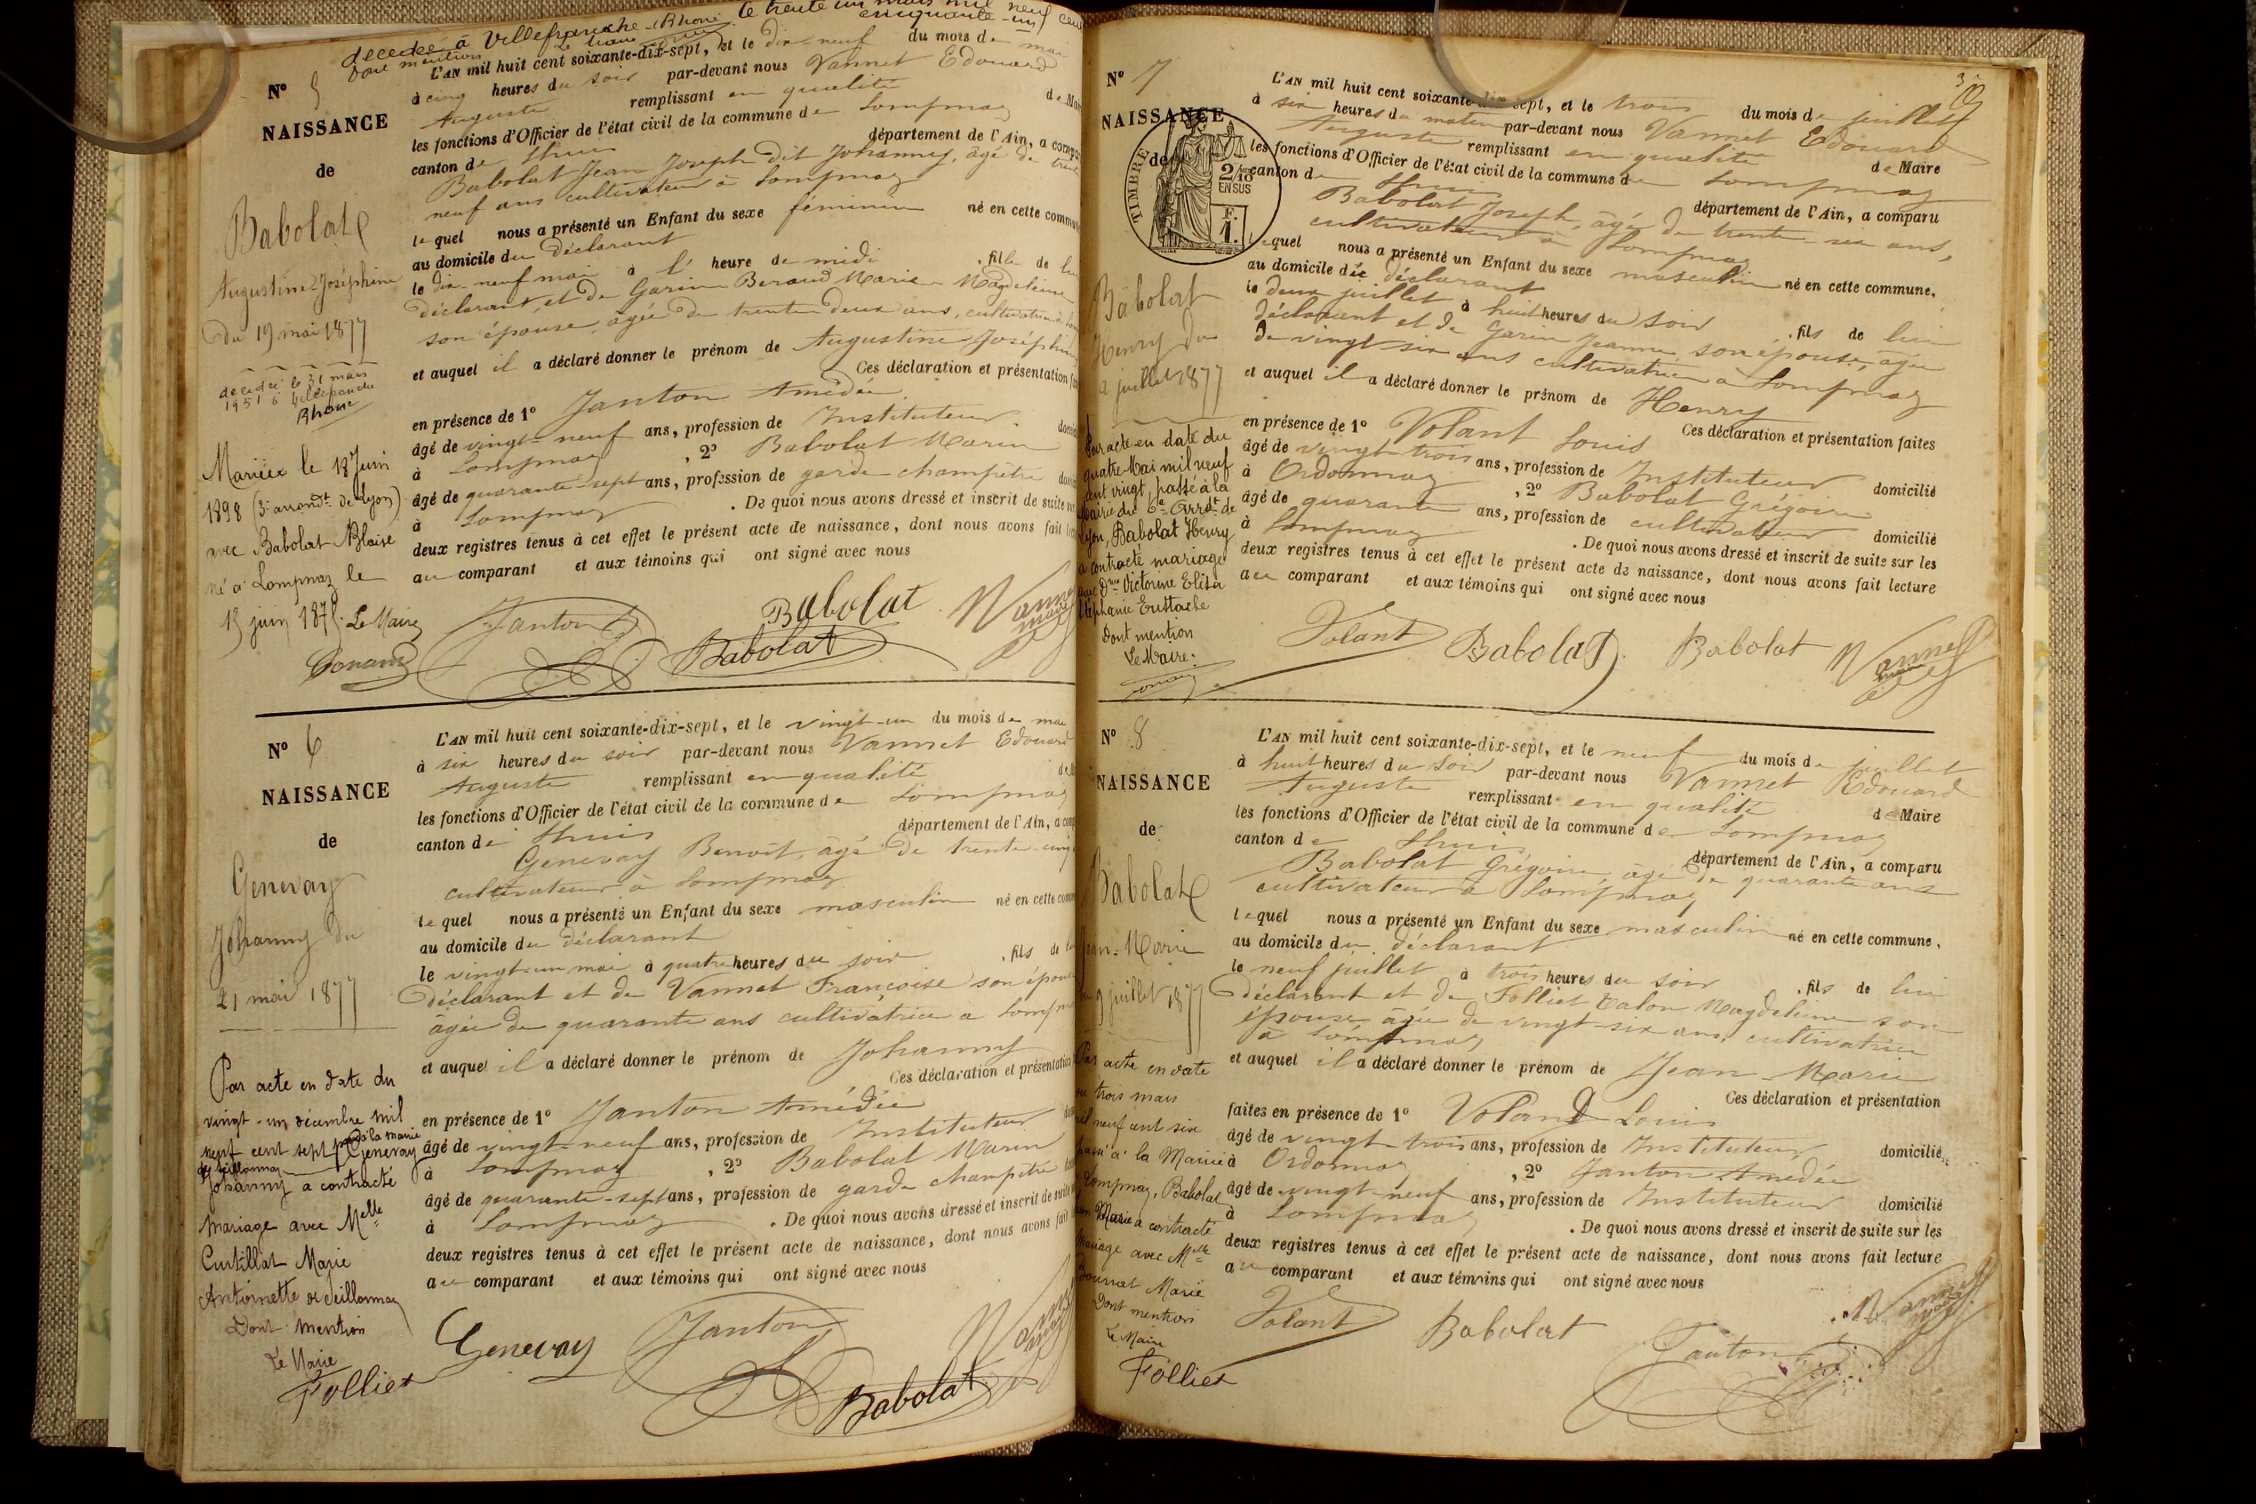 decedée à Villefranche (Rhône) le trente un mars mil neuf cent
cinquante-un
Dont mention Le Maire
N° 5
NAISSANCE
de
Babolat
Augustine Joséphine
Du 19 mai 1877
decedée le 31 mars
1951 à Villefranche
Rhône
Mariée le 18 Juin
1898 (3e arrondt de Lyon)
avec Babolat Blaise
né à Lompnaz le
15 juin 1875. Le Maire
L'AN mil huit cent soixante-dix-sept, et le dix-neuf du mois de mai
à cinq heures du soir par-devant nous Vannet Edouard
Auguste remplissant en qualité de Mai
les fonctions d'Officier de l'état civil de la commune de Lompnaz
canton de Lhuis département de l'Ain, a compa
Babolat Jean Joseph dit Johanny, âgé de trente
neuf ans cultivateur à Lompnaz
lequel nous a présenté un Enfant du sexe féminin né en cette commun
au domicile du déclarant
le dix-neuf mai à l' heure de midi , fille de lui
déclarant et de Garin Beraud Marie Magdeleine
son épouse, âgée de trente deux ans, cultivatrice à Lom
et auquel il a déclaré donner le prénom de Augustine Joséphine
Ces déclaration et présentation fai
en présence de 1° Janton Amédée
âgé de vingt-neuf ans, profession de Instituteur domici
à Lompnaz , 2° Babolat Marin
âgé de quarante-sept ans, profession de garde champêtre domi
à Lompnaz . De quoi nous avons dressé et inscrit de suite sur
deux registres tenus à cet effet le présent acte de naissance, dont nous avons fait lec
au comparant et aux témoins qui ont signé avec nous
Janton Babolat Babolat Vannet
maire
N° 6
NAISSANCE
de
Genevay
Johanny Du
21 mai 1877
Par acte en date du
vingt-un décembre mil
neuf cent sept passé à la mairie
de Seillonnaz Genevay
Johanny a contracté
mariage avec Melle
Curtillat Marie
Antoinette de Seillonnaz
Dont mention
Le Maire
Folliet
L'AN mil huit cent soixante-dix-sept, et le vingt-un du mois de mai
à six heures du soir par-devant nous Vannet Edouard
Auguste remplissant en qualité de M
les fonctions d'Officier de l'état civil de la commune de Lompnaz
canton de Lhuis département de l'Ain, a comp
Genevay Benoît, âgé de trente-cinq
cultivateur à Lompnaz
lequel nous a présenté un Enfant du sexe masculin né en cette comm
au domicile du déclarant
le vingt-un mai à quatre heures du soir , fils de lui
déclarant et de Vannet Françoise son épouse
âgée de quarante ans cultivatrice à Lompnaz
et auquel il a déclaré donner le prénom de Johanny
Ces déclaration et présentation
en présence de 1° Janton Amédée
âgé de vingt-neuf ans, profession de Instituteur
à Lompnaz , 2° Babolat Marin
âgé de quarante-sept ans, profession de garde champêtre
à Lompnaz . De quoi nous avons dressé et inscrit de suite
deux registres tenus à cet effet le présent acte de naissance, dont nous avons fait
au comparant et aux témoins qui ont signé avec nous
Genevay Janton Babolat Vannet
maire
N° 7
NAISSANCE
de
TIMBRE
2/10
EN SUS
F.
1.
Babolat
Henry Du
2 juillet 1877
Par acte en date du
quatre Mai mil neuf
cent vingt, passé à la
Mairie du 6e Arrdt de
Lyon, Babolat Henry
a contracté mariage
avec Dlle Victorine Elisa
Stéphanie Eustache
Dont mention
Le Maire:
L'AN mil huit cent soixante-dix-sept, et le trois du mois de juillet
à six heures du matin par-devant nous Vannet Edouard
Auguste remplissant en qualité de Maire
les fonctions d'Officier de l'état civil de la commune de Lompnaz
canton de Lhuis département de l'Ain, a comparu
Babolat Joseph, âgé de trente-six ans,
cultivateur à Lompnaz
lequel nous a présenté un Enfant du sexe masculin né en cette commune,
au domicile du déclarant
le deux juillet à huit heures du soir , fils de lui
déclarant et de Garin Jeanne son épouse, âgée
de vingt-six ans cultivatrice à Lompnaz
et auquel il a déclaré donner le prénom de Henry
Ces déclaration et présentation faites
en présence de 1° Volant Louis
âgé de vingt-trois ans, profession de Instituteur domicilié
à Ordonnaz , 2° Babolat Grégoire
âgé de quarante ans, profession de cultivateur domicilié
à Lompnaz . De quoi nous avons dressé et inscrit de suite sur les
deux registres tenus à cet effet le présent acte de naissance, dont nous avons fait lecture
au comparant et aux témoins qui ont signé avec nous
Volant Babolat Babolat Vannet
maire
N° 8
NAISSANCE
de
Babolat
Jean-Marie
Du 9 juillet 1877
Par acte en date
du trois mars
mil neuf cent six
passé à la Mairie
de Lompnaz, Babolat
Jean Marie a contracté
mariage avec Melle
Marie
Dont mention
Le Maire
Folliet
L'AN mil huit cent soixante-dix-sept, et le neuf du mois de juillet
à huit heures du soir par-devant nous Vannet Edouard
Auguste remplissant en qualité de Maire
les fonctions d'Officier de l'état civil de la commune de Lompnaz
canton de Lhuis département de l'Ain, a comparu
Babolat Grégoire, âgé de quarante ans
cultivateur à Lompnaz
lequel nous a présenté un Enfant du sexe masculin né en cette commune,
au domicile du déclarant
le neuf juillet à trois heures du soir , fils de lui
déclarant et de Folliet Talon Magdeleine son
épouse âgée de vingt-six ans, cultivatrice
à Lompnaz
et auquel il a déclaré donner le prénom de Jean-Marie
Ces déclaration et présentation
faites en présence de 1° Volant Louis
âgé de vingt-trois ans, profession de Instituteur domicilié
à Ordonnaz , 2° Janton Amédée
âgé de vingt-neuf ans, profession de Instituteur domicilié
à Lompnaz . De quoi nous avons dressé et inscrit de suite sur les
deux registres tenus à cet effet le présent acte de naissance, dont nous avons fait lecture
au comparant et aux témoins qui ont signé avec nous
Volant Babolat Janton Vannet
maire